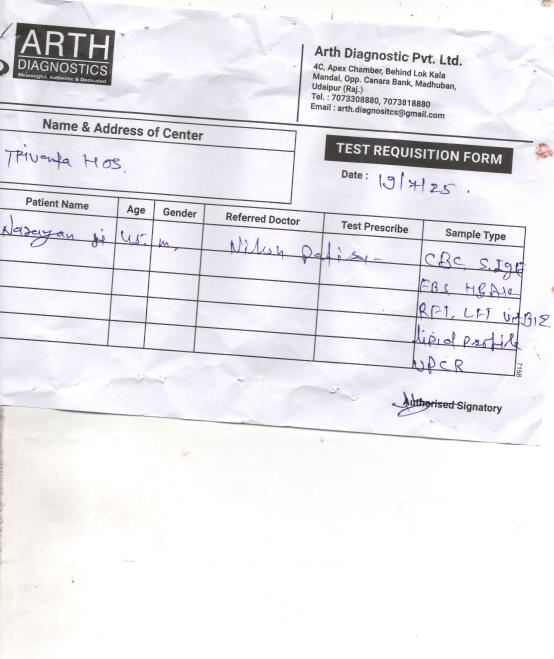 ARTH
DIAGNOSTICS
Meaningful, Authentic & Dedicated
Arth Diagnostic Pvt. Ltd.
4C, Apex Chamber, Behind Lok Kala
Mandal, Opp. Canara Bank, Madhuban,
Udaipur (Raj.)
Tel. : 7073308880, 7073818880
Email : arth.diagnositcs@gmail.com
Name & Address of Center
TEST REQUISITION FORM
HOS.
Date : 19/7/25.
Patient Name Age Gender Referred Doctor Test Prescribe Sample Type
Narayan ji 45. m, CBC, S.IgE
FBS HBA1c
RFT, LFT vitB12
lipid profile
UPCR
7158
Authorised Signatory